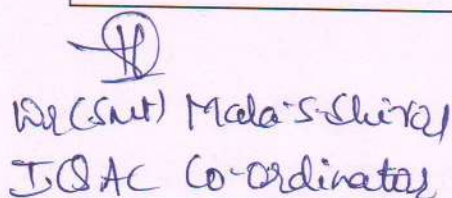 Dr (Smt) Mala.S.Shiral
I.Q.AC Co-ordinator